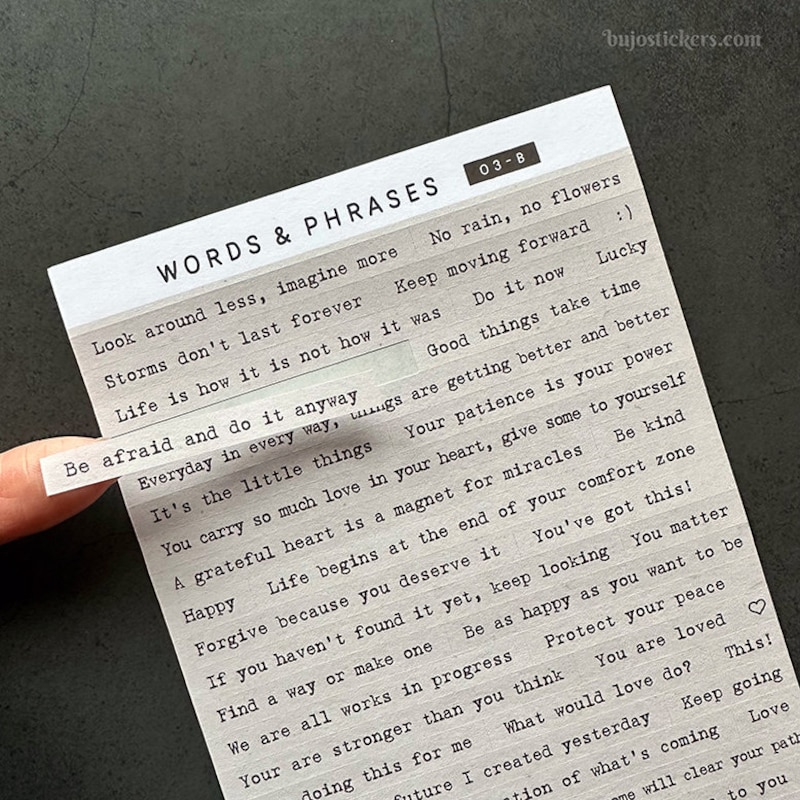 bujostickers.com
WORDS & PHRASES 03-B
Look around less, imagine more No rain, no flowers
Storms don't last forever Keep moving forward :)
Life is how it is not how it was Do it now Lucky
Good things take time
Be afraid and do it anyway
Everyday in every way, things are getting better and better
It's the little things Your patience is your power
You carry so much love in your heart, give some to yourself
A grateful heart is a magnet for miracles Be kind
Happy Life begins at the end of your comfort zone
Forgive because you deserve it You've got this!
If you haven't found it yet, keep looking You matter
Find a way or make one Be as happy as you want to be
We are all works in progress Protect your peace ♡
Your are stronger than you think You are loved
doing this for me What would love do? This!
future I created yesterday Keep going
tion of what's coming Love
ome will clear your path
to you